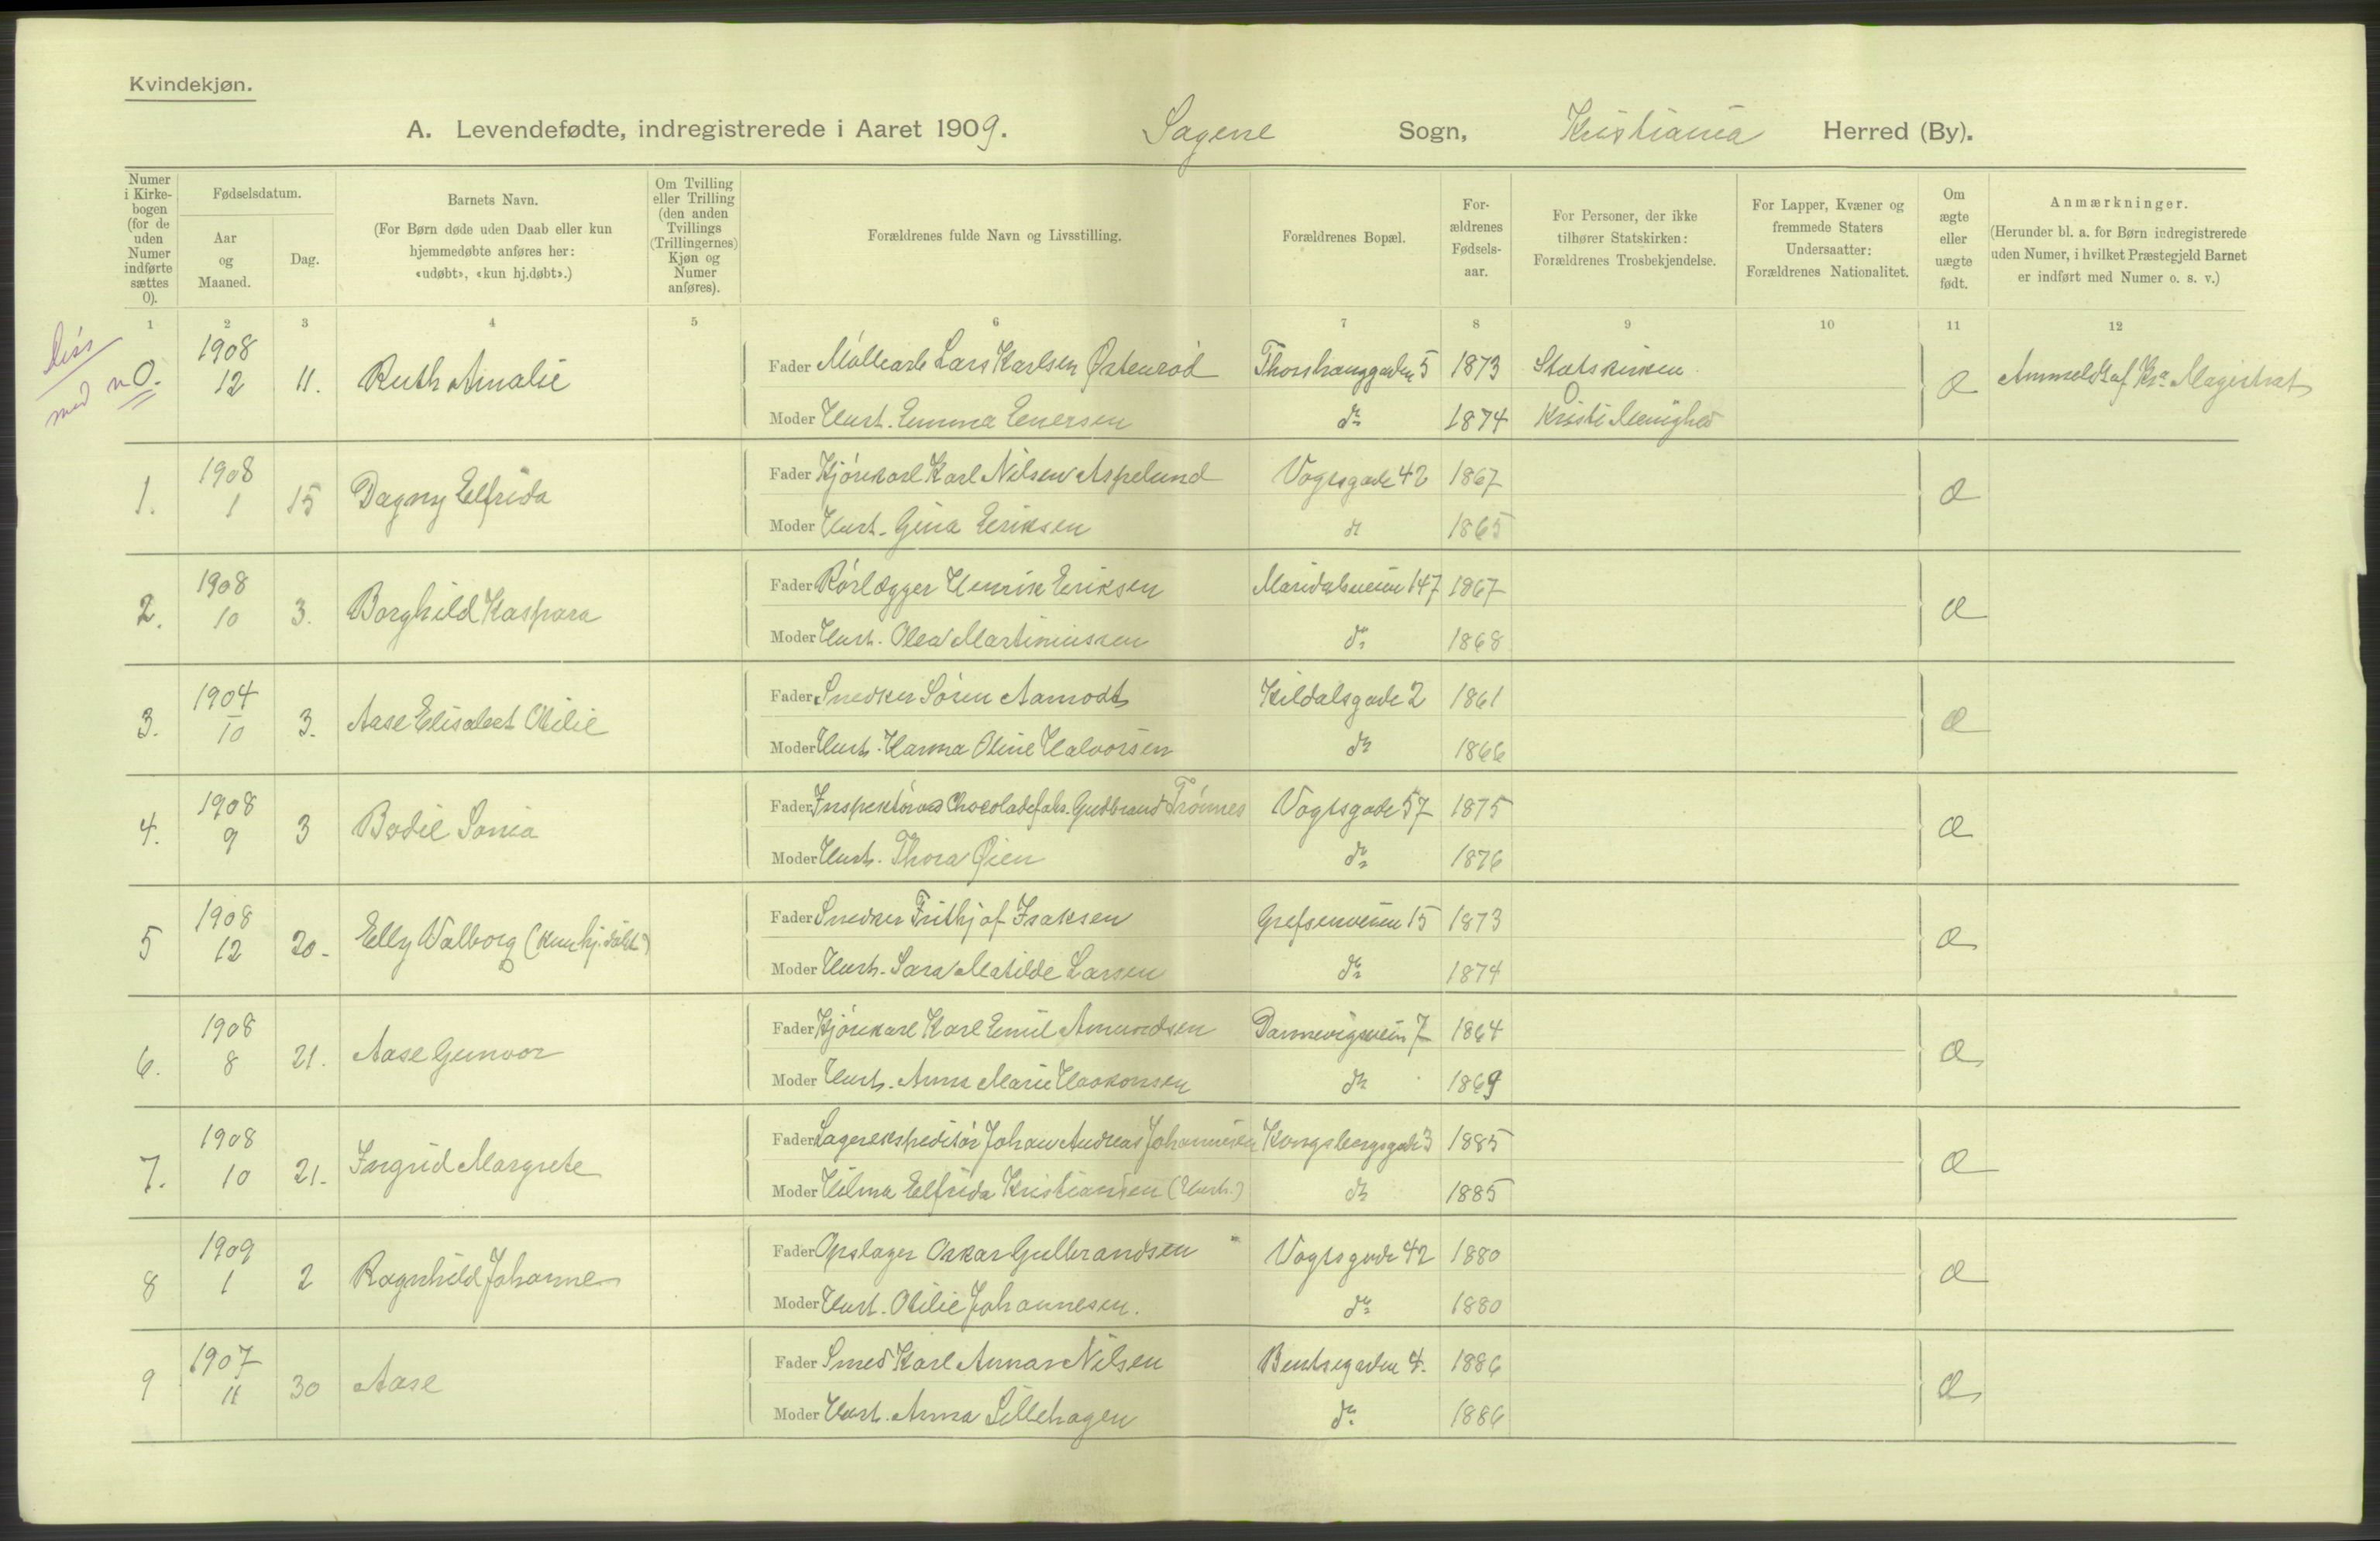 Kvindekjøn.
A. Levendefødte, indregistrerede i Aaret 1909. Sagene Sogn, Kristiania Herred (By).
Numer i Kirkebogen (for de uden Numer indførte sættes 0).
Fødselsdatum.
Aar og Maaned.
Dag.
Barnets Navn.
(For Børn døde uden Daab eller kun hjemmedøbte anføres her: «udøbt», «kun hj.døbt».)
Om Tvilling eller Trilling (den anden Tvillings (Trillingernes) Kjøn og Numer anføres).
Forældrenes fulde Navn og Livsstilling.
Forældrenes Bopæl.
Forældrenes Fødselsaar.
For Personer, der ikke tilhører Statskirken: Forældrenes Trosbekjendelse.
For Lapper, Kvæner og fremmede Staters Undersaatter: Forældrenes Nationalitet.
Om ægte eller uægte født.
Anmærkninger.
(Herunder bl. a. for Børn indregistrerede uden Numer, i hvilket Præstegjeld Barnet er indført med Numer o. s. v.)
1 2 3 4 5 6 7 8 9 10 11 12
0. 1908 12 11. Ruth Amalie
Fader Møllearb Lars Karlsen Østenrød 1873 Statskirken
Moder Hust. Emma Enersen do 1874 Kristi Menighed
Æ Anmeldt af Kra Magistrat
1. 1908 1 15 Dagny Elfrida
Fader Kjørekarl Karl Nilsen Aspelund Vogtsgade 42 1867
Moder Hust. Gina Eriksen do 1865
Æ
2. 1908 10 3. Borghild Kaspara
Fader Rørlægger Henrik Eriksen Maridalsveien 147 1867
Moder Hust. Olea Martiniussen do 1868
Æ
3. 1904 10 3. Aase Elisabet Otilie
Fader Snedker Søren Aamodt Kildalsgade 2 1861
Moder Hust. Hanna Oline Halvorsen do 1866
Æ
4. 1908 9 3 Bodil Sonia
Fader Inspektør ved Chocoladefabr. Gudbrand Trønnes Vogtsgade 57 1875
Moder Hust. Thora Øien do 1876
Æ
5 1908 12 20. Elly Valborg (kun hj. døbt)
Fader Snedker Frithjof Isaksen Grefsenveien 15 1873
Moder Hust. Sara Matilde Larsen do 1874
Æ
6. 1908 8 21. Aase Gunvor
Fader Kjørekarl Karl Emil Amundsen Dannevigsvein 7 1864
Moder Hust. Anna Marie Haakonsen do 1869
Æ
7. 1908 10 21. Ingrid Margrete
Fader Lagerekspeditør Johan Andreas Johannesen Kongsbergsgade 3 1885
Moder Hilma Elfrida Kristiansen (Hust.) do 1885
Æ
8 1909 1 2 Ragnhild Johanne
Fader Opslager Oskar Gulbrandsen Vogtsgade 42 1880
Moder Hust. Otilie Johannesen. do 1880
Æ
9 1907 11 30 Aase
Fader Smed Karl Annar Nilsen Bentsegaden 4. 1886
Moder Hust. Anna Lillehagen do 1886
Æ